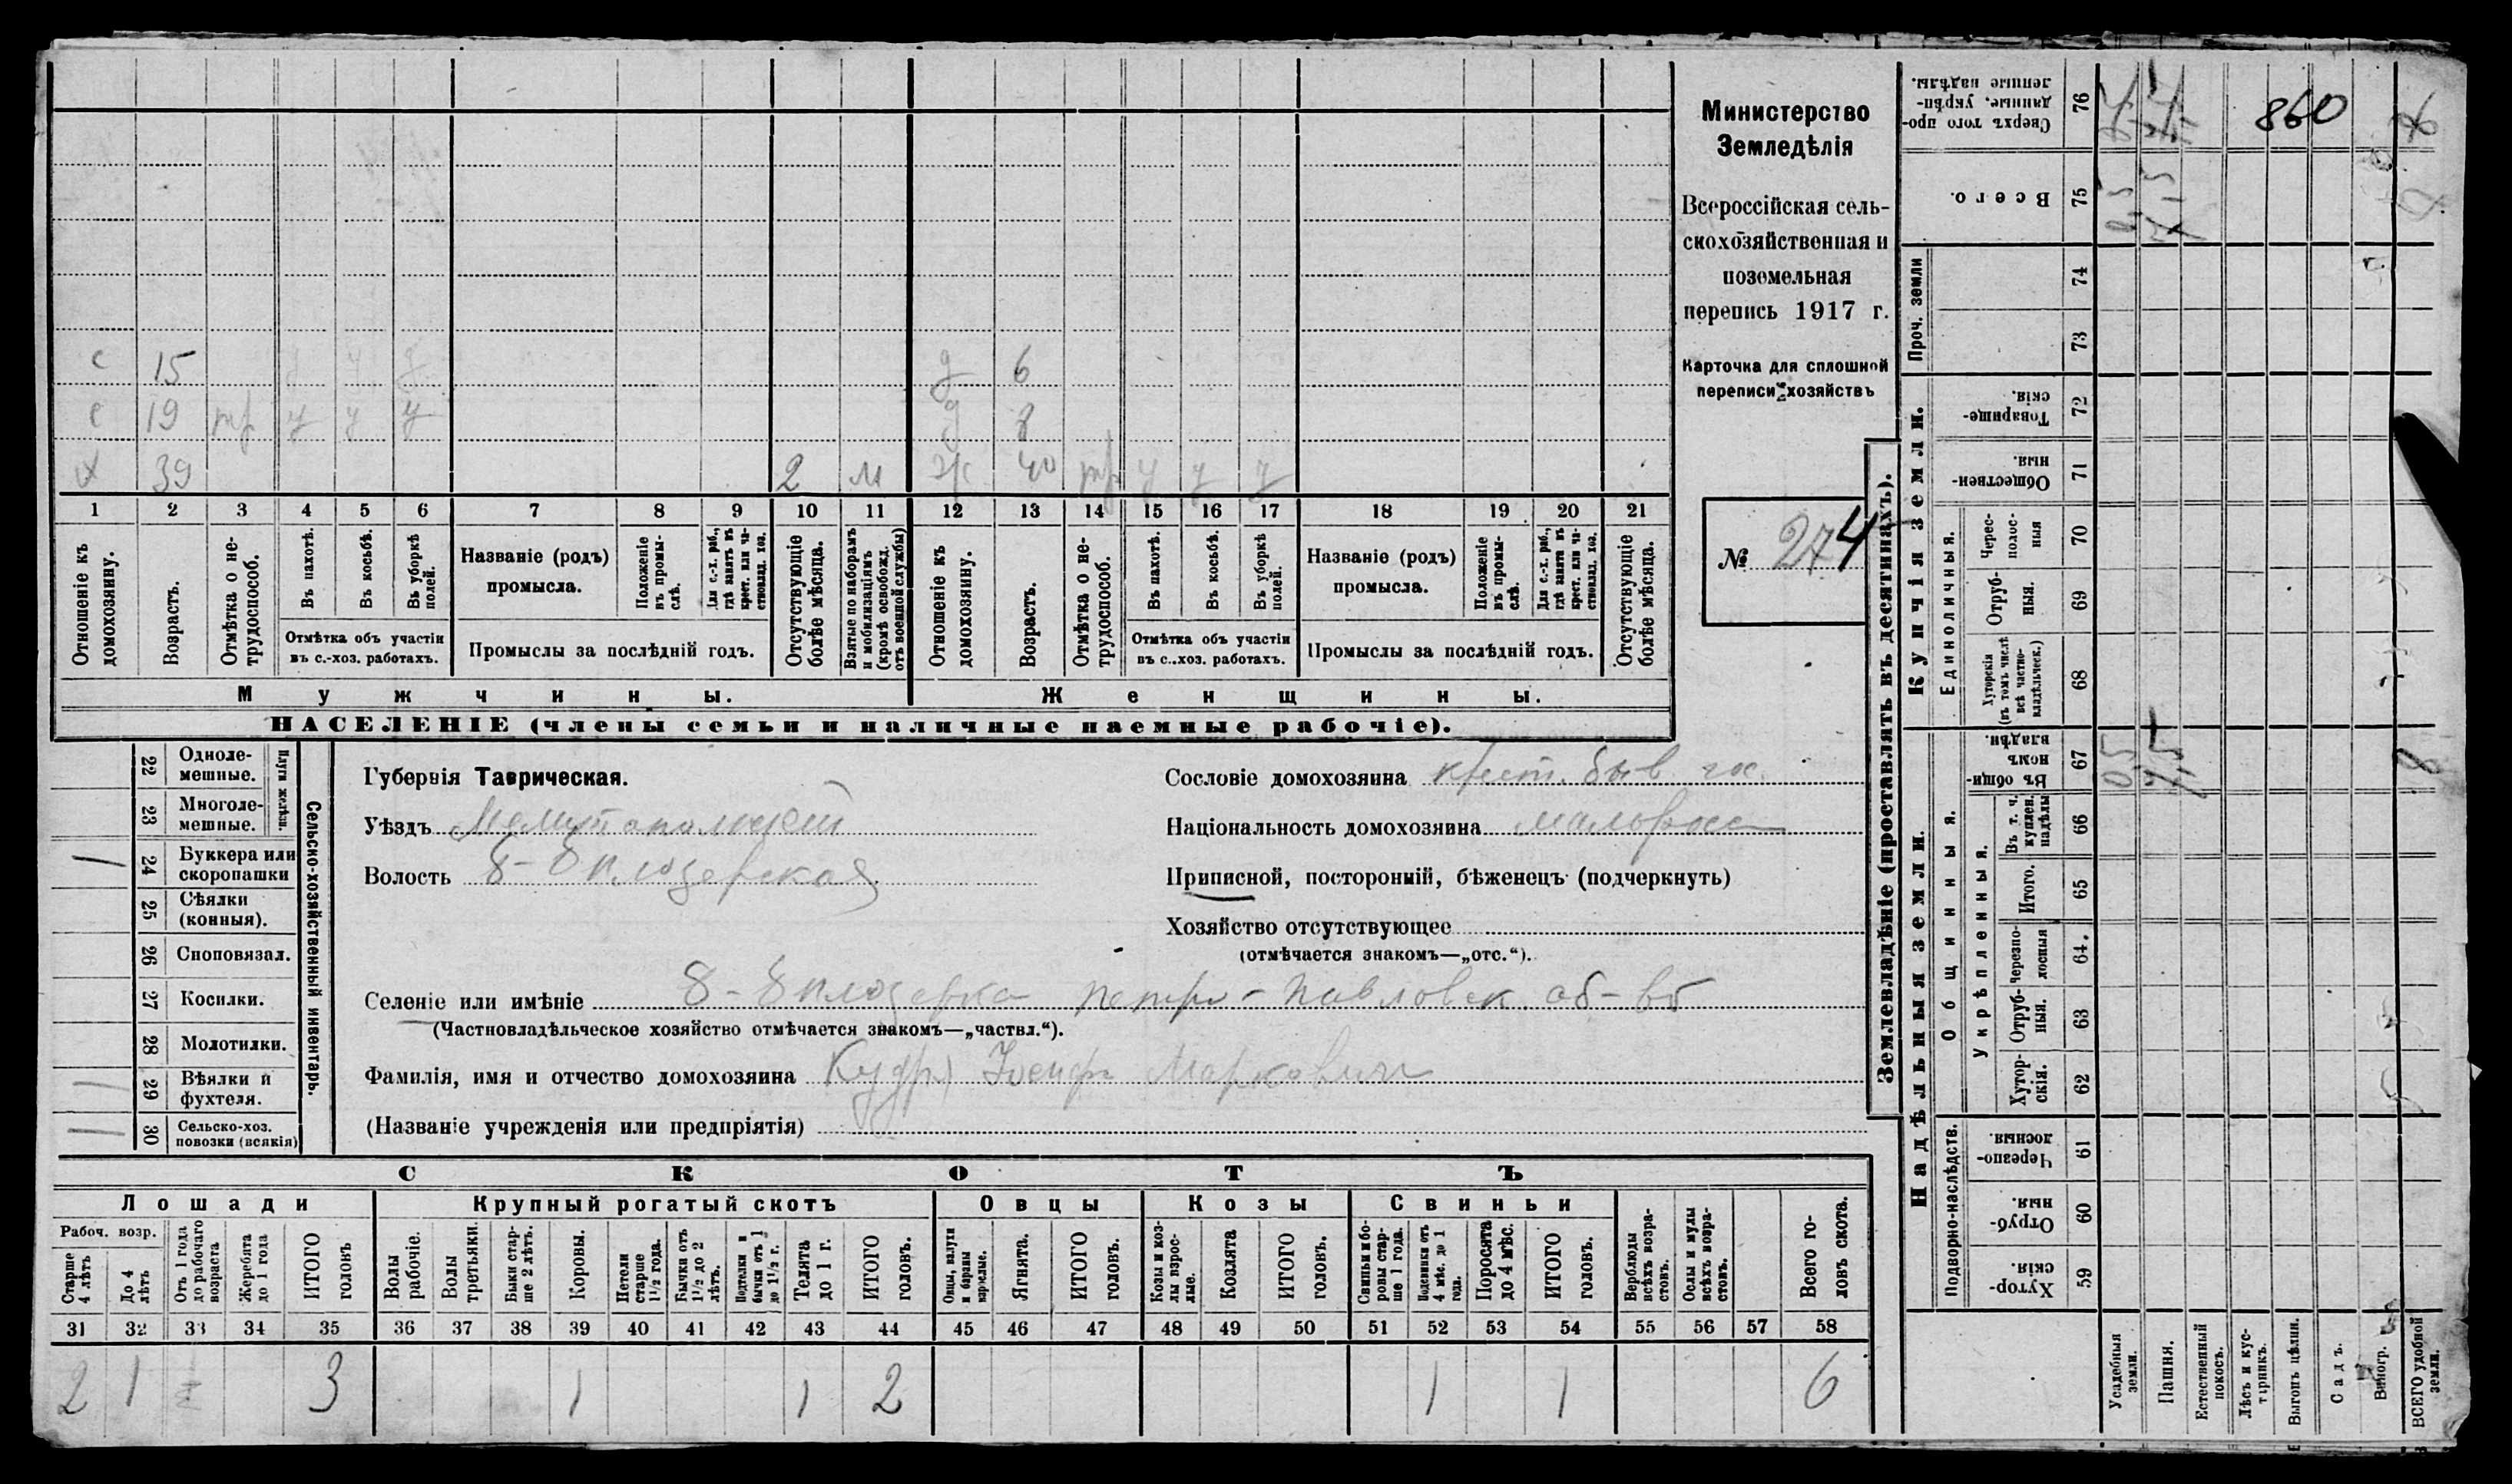 Министерство
Земледѣлія
Всероссійская сель-
скохозяйственная и
поземельная
перепись 1917 г.
Карточка для сплошной
переписи хозяйствъ
№ 274
с 15
д 6
с 19 тр у у у
д 8
х 39 2 м ж 40 тр у у у
1 2 3 4 5 6 7 8 9 10 11 12 13 14 15 16 17 18 19 20 21
Отношеніе къ домохозяину.
Возрастъ.
Отмѣтка о не-трудоспособ.
Въ пахотѣ.
Въ косьбѣ.
Въ уборкѣ полей.
Отмѣтка объ участіи
въ с.-хоз. работахъ.
Названіе (родъ)
промысла.
Положеніе въ промы-слѣ.
Для с.-х. раб., гдѣ занятъ въ крест. или ча-стновлад. хоз.
Промыслы за послѣдній годъ.
Отсутствующіе болѣе мѣсяца.
Взятые по наборамъ и мобилизаціямъ (кромѣ освобожд. отъ военной службы)
Отношеніе къ домохозяину.
Возрастъ.
Отмѣтка о не-трудоспособ.
Въ пахотѣ.
Въ косьбѣ.
Въ уборкѣ полей.
Отмѣтка объ участіи
въ с..хоз. работахъ.
Названіе (родъ)
промысла.
Положеніе въ промы-слѣ.
Для с.-х. раб., гдѣ занятъ въ крест. или ча-стновлад. хоз.
Промыслы за послѣдній годъ.
Отсутствующіе болѣе мѣсяца.
Мужчины. Женщины.
НАСЕЛЕНІЕ (члены семьи и наличные наемные рабочіе).
Сельско-хозяйственный инвентарь.
Плуги желѣзн.
22 Одноле-мешные.
23 Многоле-мешные.
24 Буккера или скоропашки
25 Сѣялки (конныя).
26 Сноповязал.
27 Косилки.
28 Молотилки.
29 Вѣялки и фухтеля.
30 Сельско-хоз. повозки (всякія)
Губернія Таврическая.
Уѣздъ Мелитопольскій
Волость Б-Бѣлозерская
Сословіе домохозяина крест. быв гос.
Національность домохозяина малоросс
Приписной, посторонній, бѣженецъ (подчеркнуть)
Хозяйство отсутствующее
(отмѣчается знакомъ—„отс.“).
Селеніе или имѣніе Б-Бѣлозерка петро-павловск. об-во
(Частновладѣльческое хозяйство отмѣчается знакомъ—„частвл.“).
Фамилія, имя и отчество домохозяина Кудря Іосифъ Марковичъ
(Названіе учрежденія или предпріятія)
СКОТЪ
Лошади Крупный рогатый скотъ Овцы Козы Свиньи
Рабоч. возр.
Старше 4 лѣтъ
До 4 лѣтъ
Отъ 1 года до рабочаго возраста
Жеребята до 1 года
ИТОГО головъ
Волы рабочіе.
Волы третьяки.
Быки стар-ше 2 лѣтъ.
Коровы.
Нетели старше 1½ года.
Бычки отъ 1½ до 2 лѣтъ.
Подтелки и бычки отъ 1 до 1½ г.
Телята до 1 г.
ИТОГО головъ.
Овцы, валухи и бараны взрослые.
Ягнята.
ИТОГО головъ.
Козы и коз-лы взрос-лые.
Козлята
ИТОГО головъ.
Свиньи и бо-ровы стар-ше 1 года.
Подсвинки отъ 4 мѣс. до 1 года.
Поросята до 4 мѣс.
ИТОГО головъ.
Верблюды всѣхъ возра-стовъ.
Ослы и мулы всѣхъ возра-стовъ.
Всего го-ловъ скота.
31 32 33 34 35 36 37 38 39 40 41 42 43 44 45 46 47 48 49 50 51 52 53 54 55 56 57 58
2 1 3 1 1 2 1 1 6
Землевладѣніе (проставлять въ десятинахъ).
Надѣльныя земли.
Купчія земли.
Проч. земли
Подворно-наслѣдств.
Общинныя.
Укрѣпленныя.
Единоличныя.
Хутор-скія. 59
Отруб-ныя. 60
Черезпо-лосныя. 61
Хутор-скія. 62
Отруб-ныя. 63
Черезпо-лосныя 64.
Итого. 65
Въ т. ч. куплен. надѣлы 66
Въ общин-номъ владѣн. 67
Хуторскія (въ томъ числѣ всѣ частно-владѣльческ.) 68
Отруб-ныя. 69
Черес-полос-ныя 70
Обществен-ныя. 71
Товарище-скія. 72
73
74
Всего. 75
Сверхъ того про-данные, укрѣп-ленные надѣлы. 76
Усадебныя земли.
Пашня.
Естественный покосъ.
Лѣсъ и кус-тарникъ.
Выгонъ цѣлин.
Садъ.
Виногр.
ВСЕГО удобной земли.
05 7,5 8
0,5 7,5 8
860